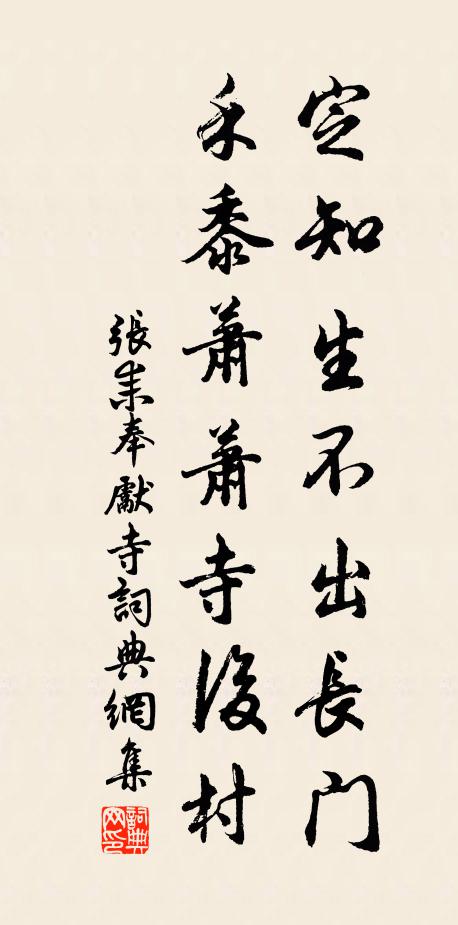 定知生不出長門
禾黍蕭蕭寺後村
張耒奉獻寺詞典網集
詞典网印